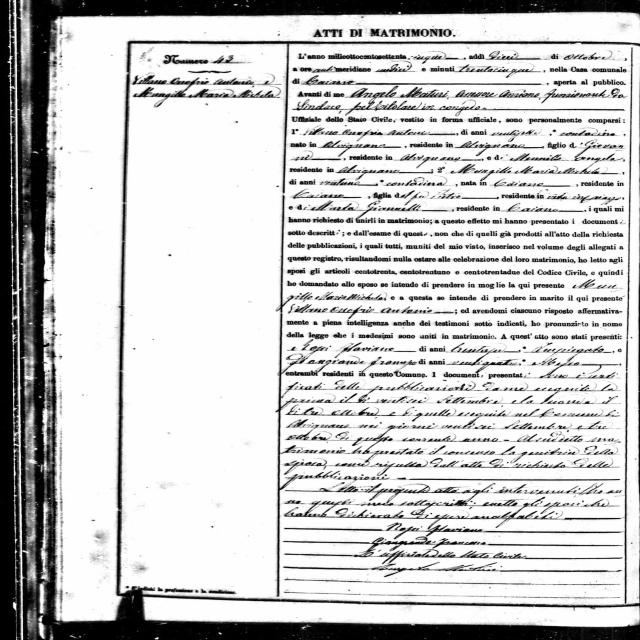 ATTI DI MATRIMONIO.
Numero 42
Villano Onofrio Antonio e
Mungillo Maria Michela
L'anno milleottocentosettanta cinque, addì dieci di Ottobre
a ore anti meridiane undici e minuti trentacinque, nella Casa comunale
di Caiazzo, aperta al pubblico.
Avanti di me Angelo assessore anziano, funzionante da
Sindaco, pel titolare in congedo
Uffiziale dello Stato Civile, vestito in forma ufficiale, sono personalmente comparsi:
1° Villano Onofrio Antonio, di anni contadino
nato in Alvignano, residente in Alvignano, figlio di Giovan
ni, residente in Alvignano e di Angela
residente in Alvignano; 2° Mungillo Maria Michela
di anni ventuno contadina, nata in Caiazzo, residente in
Caiazzo, figlia del fu Pietro, residente in vita
e di Marta Giannelli, residente in Caiazzo, i quali mi
hanno richiesto di unirli in matrimonio; a questo effetto mi hanno presentato i documenti
sotto descritti; e dall'esame di questi, non che di quelli già prodotti all'atto della richiesta
delle pubblicazioni, i quali tutti, muniti del mio visto, inserisco nel volume degli allegati a
questo registro, risultandomi nulla ostare alla celebrazione del loro matrimonio, ho letto agli
sposi gli articoli centotrenta, centotrentuno e centotrentadue del Codice Civile, e quindi
ho domandato allo sposo se intende di prendere in moglie la qui presente Mun
gillo Maria Michela e a questa se intende di prendere in marito il qui presente
Villano Onofrio Antonio; ed avendomi ciascuno risposto affermativa-
mente a piena intelligenza anche dei testimoni sotto indicati, ho pronunziato in nome
della legge che i medesimi sono uniti in matrimonio. A quest'atto sono stati presenti:
Flaviano di anni impiegato, e
di anni
entrambi residenti in questo Comune. I documenti presentati sono i certi
ficati delle pubblicazioni eseguite la
prima il dì ventisei Settembre e la seconda il
dì tre ottobre, e di quelle eseguite nel Comune di
Alvignano nei giorni ventisei Settembre e tre
ottobre di questo corrente anno - Al suddetto ma
trimonio ha prestato il consenso la genitrice della
sposa, come risulta dall'atto di richiesta delle
pubblicazioni -
Letto il presente atto agli intervenuti l'han
no questi meco sottoscritto; eccetto gli sposi che
hanno dichiarato di essere analfabeti
Flaviano
Francesco
L'uffiziale dello Stato Civile
Angelo